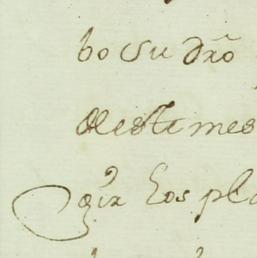 bo su dr̃o
deste mes
los pla